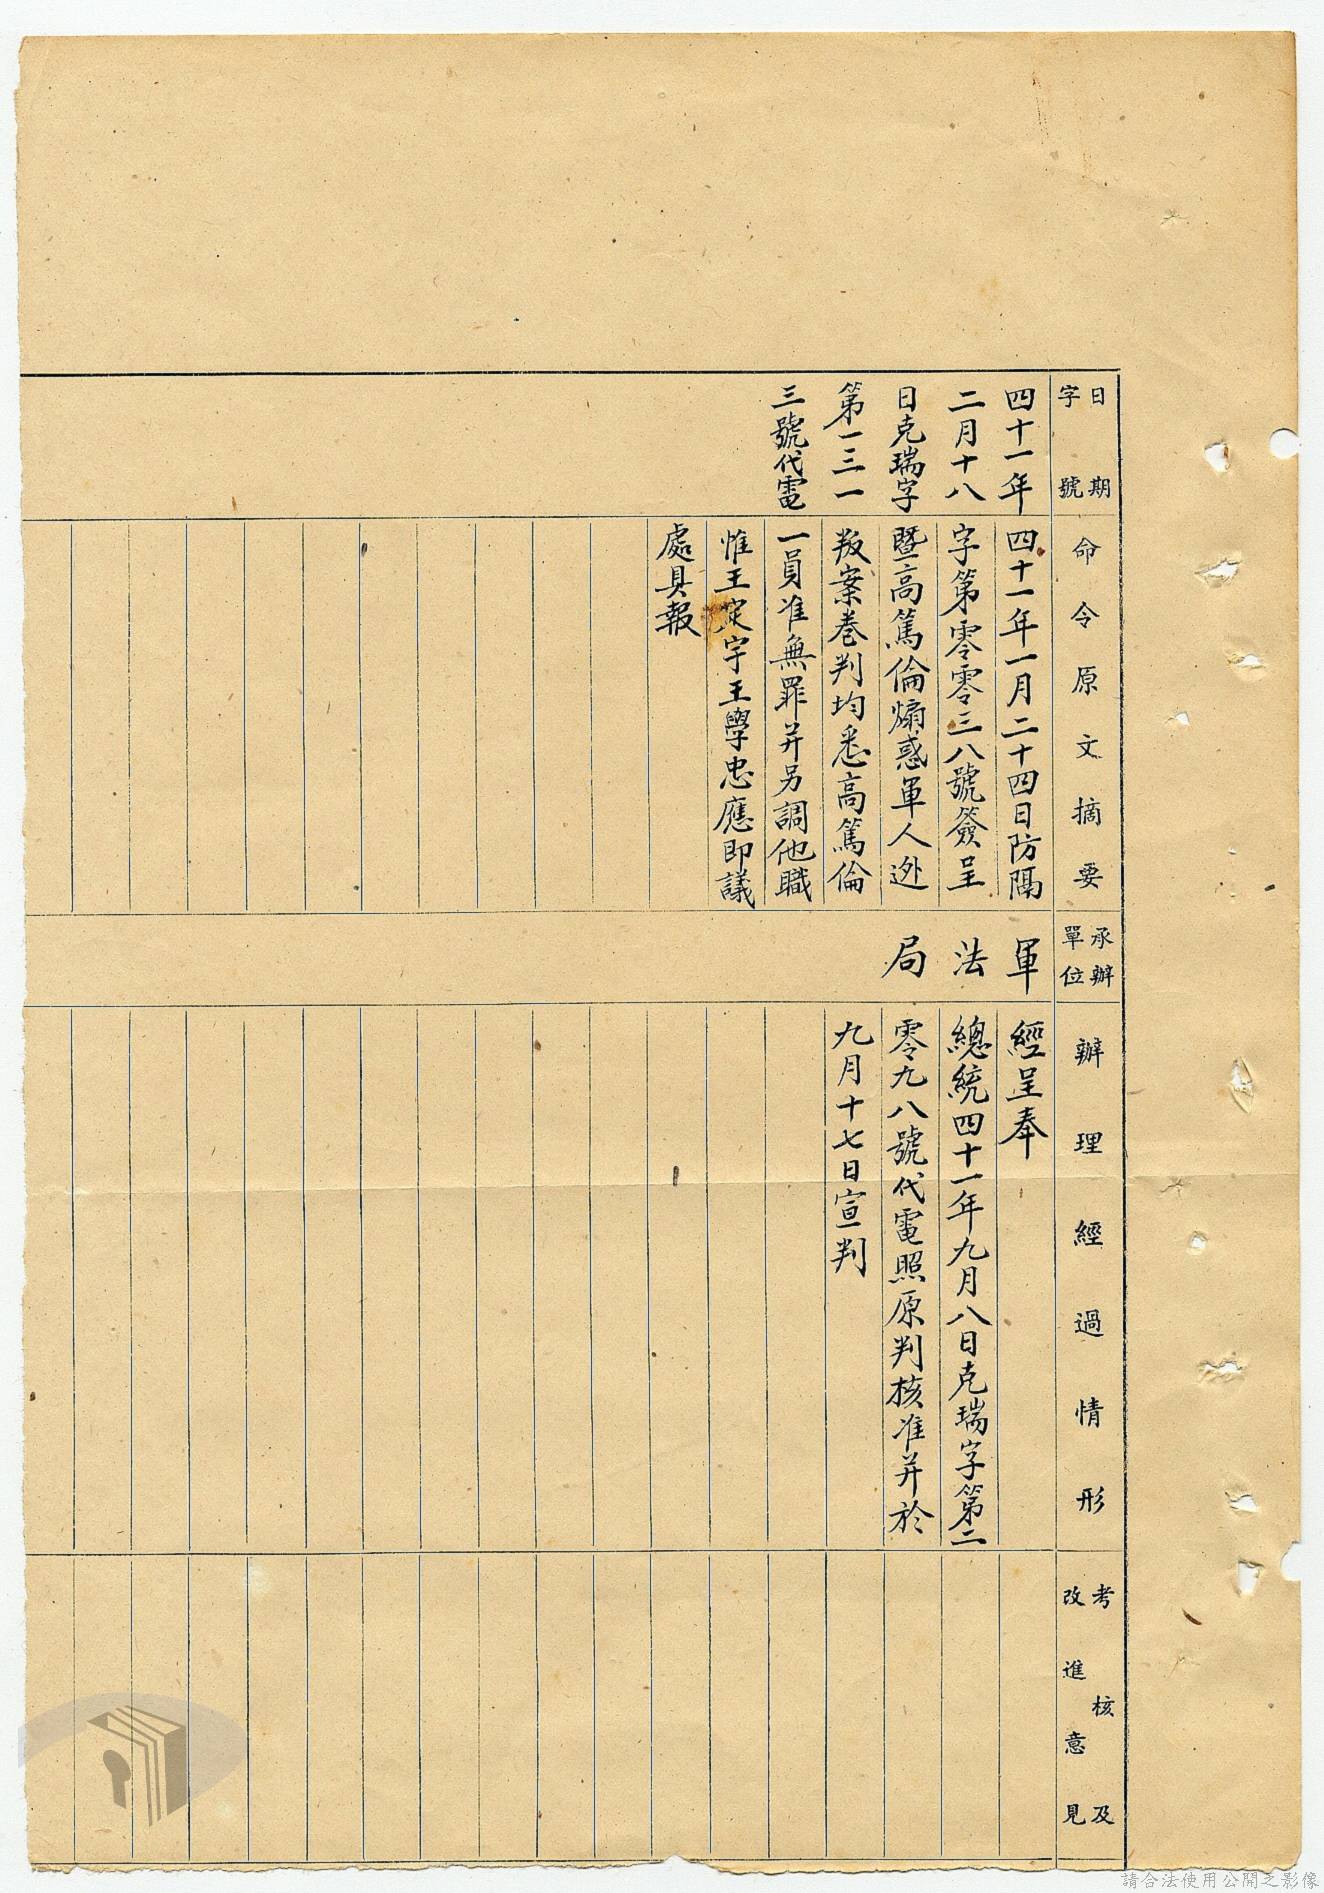 日期
字號
命令原文摘要
承辦
單位
辦理經過情形
考核及
改進意見
四十一年
二月十八
日克瑞字
第一三一
三號代電
四十一年一月二十四日防隔
字第零零三八號簽呈
暨高篤倫煽惑軍人逃
叛案卷判均悉高篤倫
一員准無罪并另調他職
惟王定宇王學忠應即議
處具報
軍
法
局
經呈奉
總統四十一年九月八日克瑞字第二
零九八號代電照原判核准并於
九月十七日宣判
請合法使用公開之影像